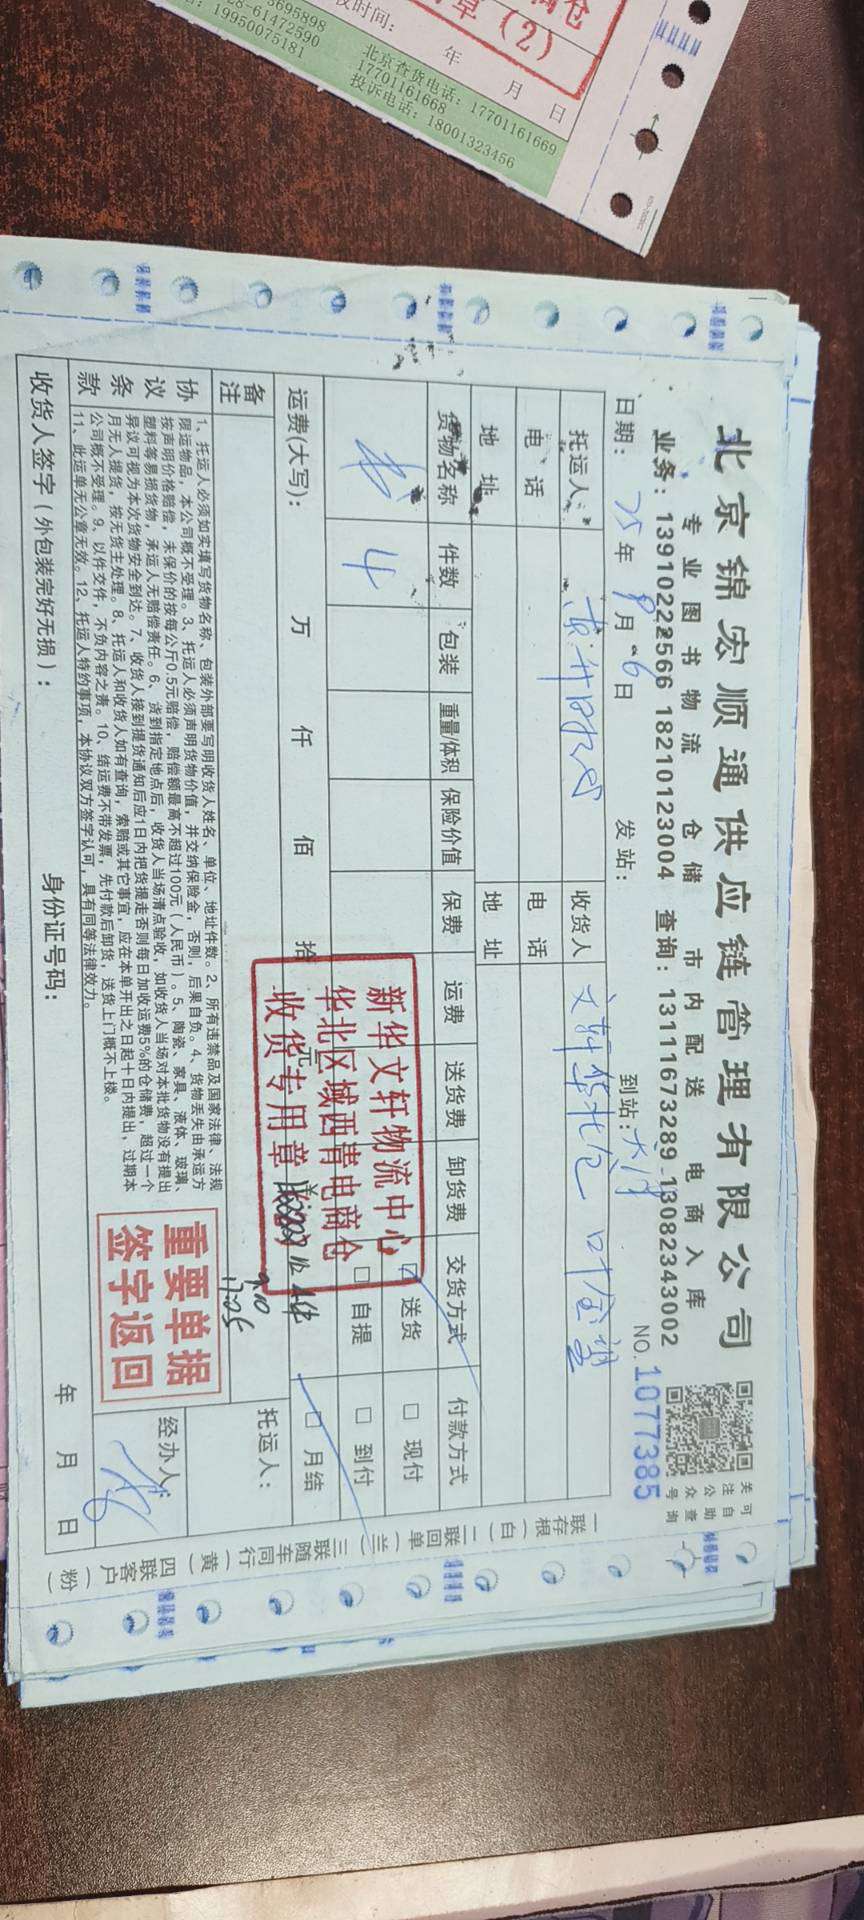 北京锦宏顺通供应链管理有限公司
专业图书物流 仓储 市内配送 电商入库
业务：13910222566 18210123004 查询：13111673289 13082343002
日期：25年9月6日 发站： 到站：天津 NO. 1077385
关注公众号
可自助查询
托运人 收货人 文轩华北仓 叶金望
电话 电话
地址 地址
货物名称 件数 包装 重量/体积 保险价值 保费 运费 送货费 卸货费 交货方式 付款方式
书 4 □送货 □现付
□自提 □到付
运费(大写)： 万 仟 佰 拾 元 □月结
新华文轩物流中心
华北区域西青电商仓
收货专用章
9.10
17:05
备注
托运人：
协议条款
1、托运人必须如实填写货物名称、包装外部要写明收货人姓名、单位、地址件数。2、所有违禁品及国家法律、法规
限运物品，本公司概不受理。3、托运人必须声明货物价值，并交纳保险金，否则，后果自负。4、货物丢失由承运方
按声明价格赔偿，未保价的按每公斤0.5元赔偿，赔偿额最高不超过100元（人民币）。5、陶瓷、家具、液体、玻璃、
塑料等易损货物，承运人无赔偿责任。6、货到指定地点后，收货人当场清点验收，如收货人当场对本批货物没有提出
异议可视为本次货物安全到达。7、收货人接到提货通知后应1日内把货提走否则每日加收运费5%的仓储费，超过一个
月无人提货，按无货主处理。8、托运人和收货人如有查询，索赔或其它事宜，应在本单开出之日起十日内提出，过期本
公司概不受理。9、以件交件，不负内容之责。10、结运费不带发票，先付款后卸货，送货上门概不上楼。
11、此运单无公章无效。12、托运人特约事项，本协议双方签字认可，具有同等法律效力。
重要单据
签字返回
经办人：
收货人签字（外包装完好无损）： 身份证号码： 年 月 日
一联存根（白）二联回单（兰）三联随车同行（黄）四联客户（粉）
收时间： 年 月 日
（2）
3695898
28-61472590
19950075181
北京查货电话：17701161669
17701161668
投诉电话：18001323456